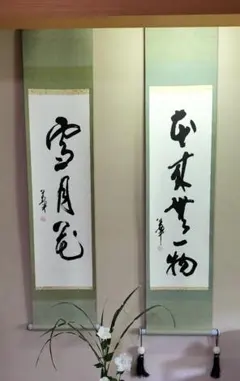 本来無一物
雪月花